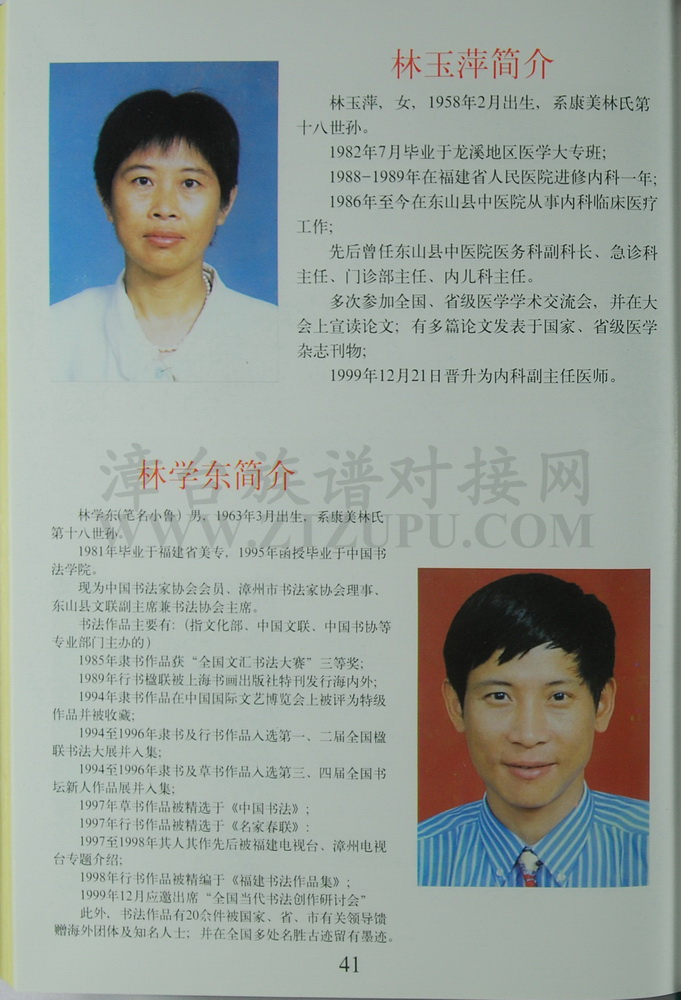 林玉萍简介
林玉萍，女，1958年2月出生，系康美林氏第
十八世孙。
1982年7月毕业于龙溪地区医学大专班;
1988-1989年在福建省人民医院进修内科一年;
1986年至今在东山县中医院从事内科临床医疗
工作;
先后曾任东山县中医院医务科副科长、急诊科
主任、门诊部主任、内儿科主任。
多次参加全国、省级医学学术交流会，并在大
会上宣读论文；有多篇论文发表于国家、省级医学
杂志刊物;
1999年12月21日晋升为内科副主任医师。
漳台族谱对接网
WWW.ZTZUPU.COM
林学东简介
林学东(笔名小鲁）男，1963年3月出生，系康美林氏
第十八世孙。
1981年毕业于福建省美专，1995年函授毕业于中国书
法学院。
现为中国书法家协会会员、漳州市书法家协会理事、
东山县文联副主席兼书法协会主席。
书法作品主要有:（指文化部、中国文联、中国书协等
专业部门主办的）
1985年隶书作品获“全国文汇书法大赛”三等奖;
1989年行书楹联被上海书画出版社特刊发行海内外;
1994年隶书作品在中国国际文艺博览会上被评为特级
作品并被收藏;
1994至1996年隶书及行书作品入选第一、二届全国楹
联书法大展并入集;
1994至1996年隶书及草书作品入选第三、四届全国书
坛新人作品展并入集;
1997年草书作品被精选于《中国书法》;
1997年行书作品被精选于《名家春联》:
1997至1998年其人其作先后被福建电视台、漳州电视
台专题介绍;
1998年行书作品被精编于《福建书法作品集》;
1999年12月应邀出席“全国当代书法创作研讨会”
此外，书法作品有20余件被国家、省、市有关领导馈
赠海外团体及知名人士；并在全国多处名胜古迹留有墨迹。
41